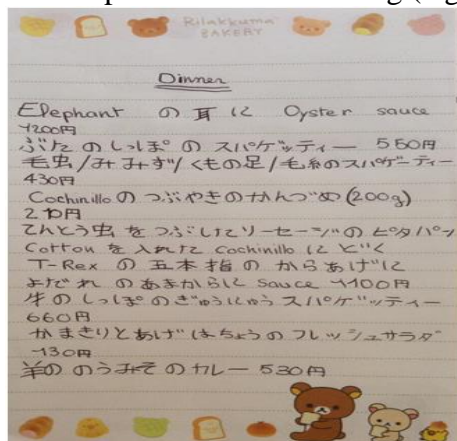 Rilakkuma
BAKERY
Dinner
Elephant の耳に Oyster sauce
1200円
ぶたのしっぽのスパゲッティー 550円
毛虫/みみず/くもの足/毛糸のスパゲーティー
430円
Cochinilloのつぶやきのかんづめ(200g)
210円
てんとう虫をつぶしたソーセージのピタパン
Cottonを入れた Cochinilloにどく
T-Rex の五本指のからあげに
よだれのあまからに sauce 1100円
牛のしっぽのぎゅうにゅうスパゲッティー
660円
かまきりとあげはちょうのフレッシュサラダ
130円
羊ののうみそのカレー 530円